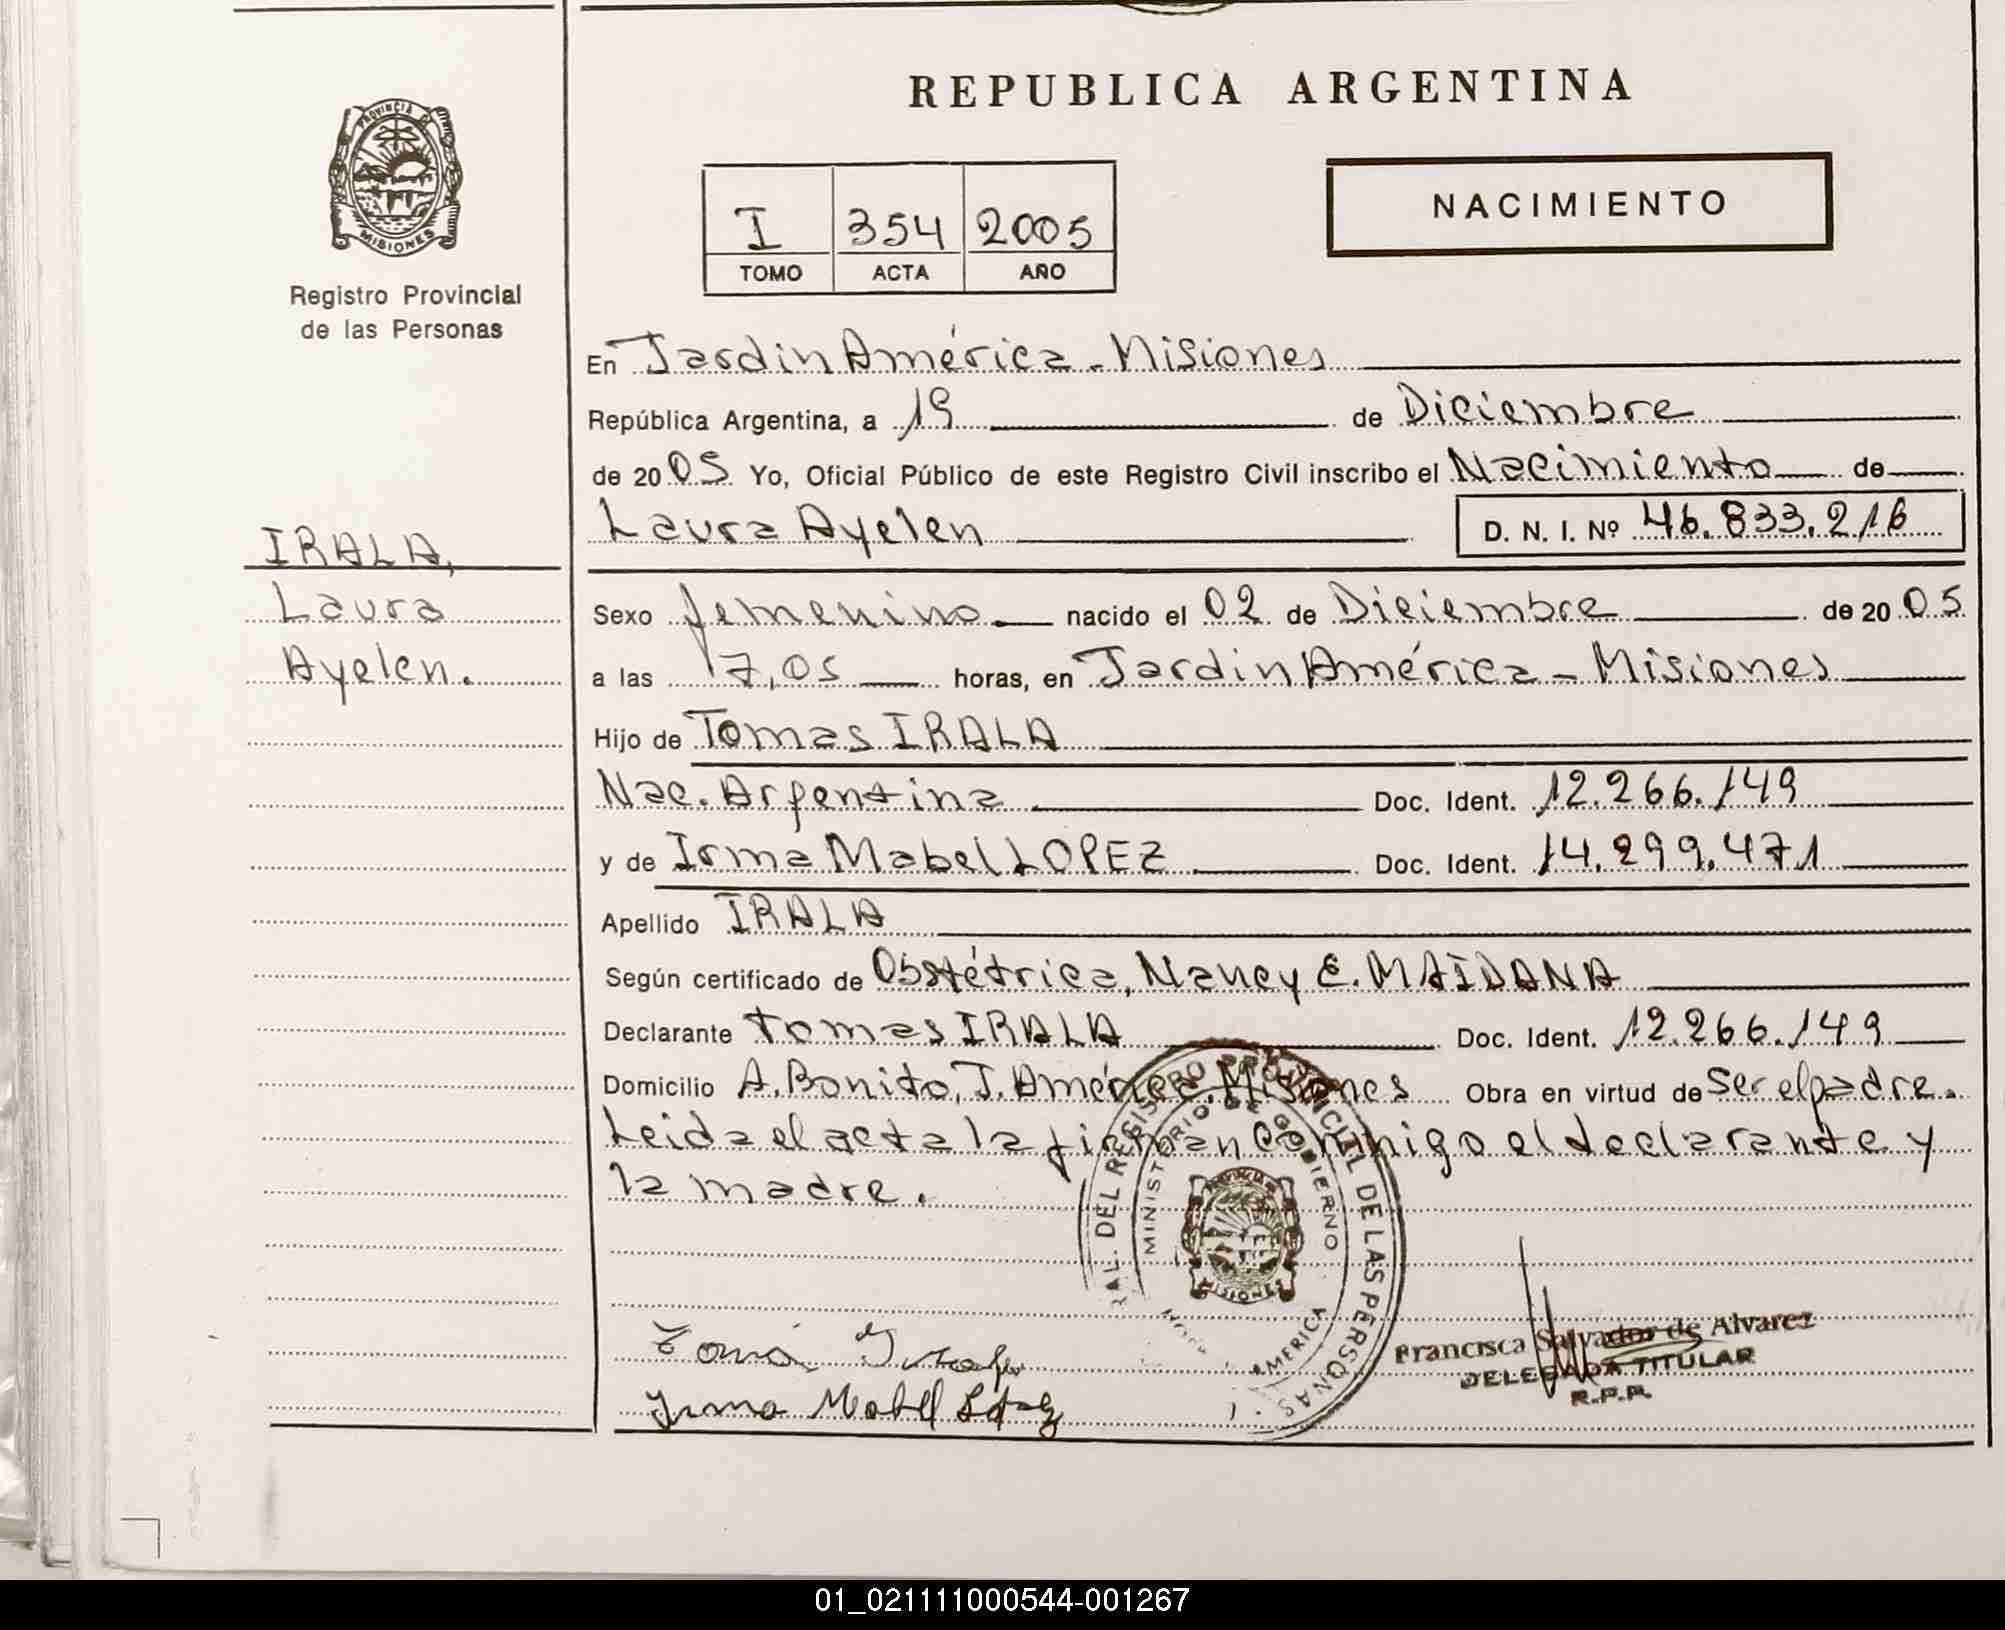 REPUBLICA ARGENTINA
PROVINCIA DE
MISIONES
Registro Provincial
de las Personas
I 354 2005
TOMO ACTA AÑO
NACIMIENTO
En Jardin América - Misiones
República Argentina, a 19 de Diciembre
de 2005 Yo, Oficial Público de este Registro Civil inscribo el Nacimiento de
Laura Ayelen D. N. I. Nº 46.833.216
IRALA,
Laura
Ayelen.
Sexo femenino nacido el 02 de Diciembre de 2005
a las 17,05 horas, en Jardin América - Misiones
Hijo de Tomas IRALA
Nac. Argentina Doc. Ident. 12.266.149
y de Irma Mabel LOPEZ Doc. Ident. 14.299.471
Apellido IRALA
Según certificado de Obstétrica, Nancy E. MAIDANA
Declarante Tomas IRALA Doc. Ident. 12.266.149
Domicilio A. Bonito, J. América. Misiones Obra en virtud de ser el padre.
Leida el acta la firman conmigo el declarante y
la madre.
DEL REGISTRO PROVINCIAL DE LAS PERSONAS
MINISTERIO DE GOBIERNO
MISIONES
AMERICA
Irma Mabel López
Francisca Salvador de Alvarez
DELEGADA TITULAR
R.P.P.
01_021111000544-001267